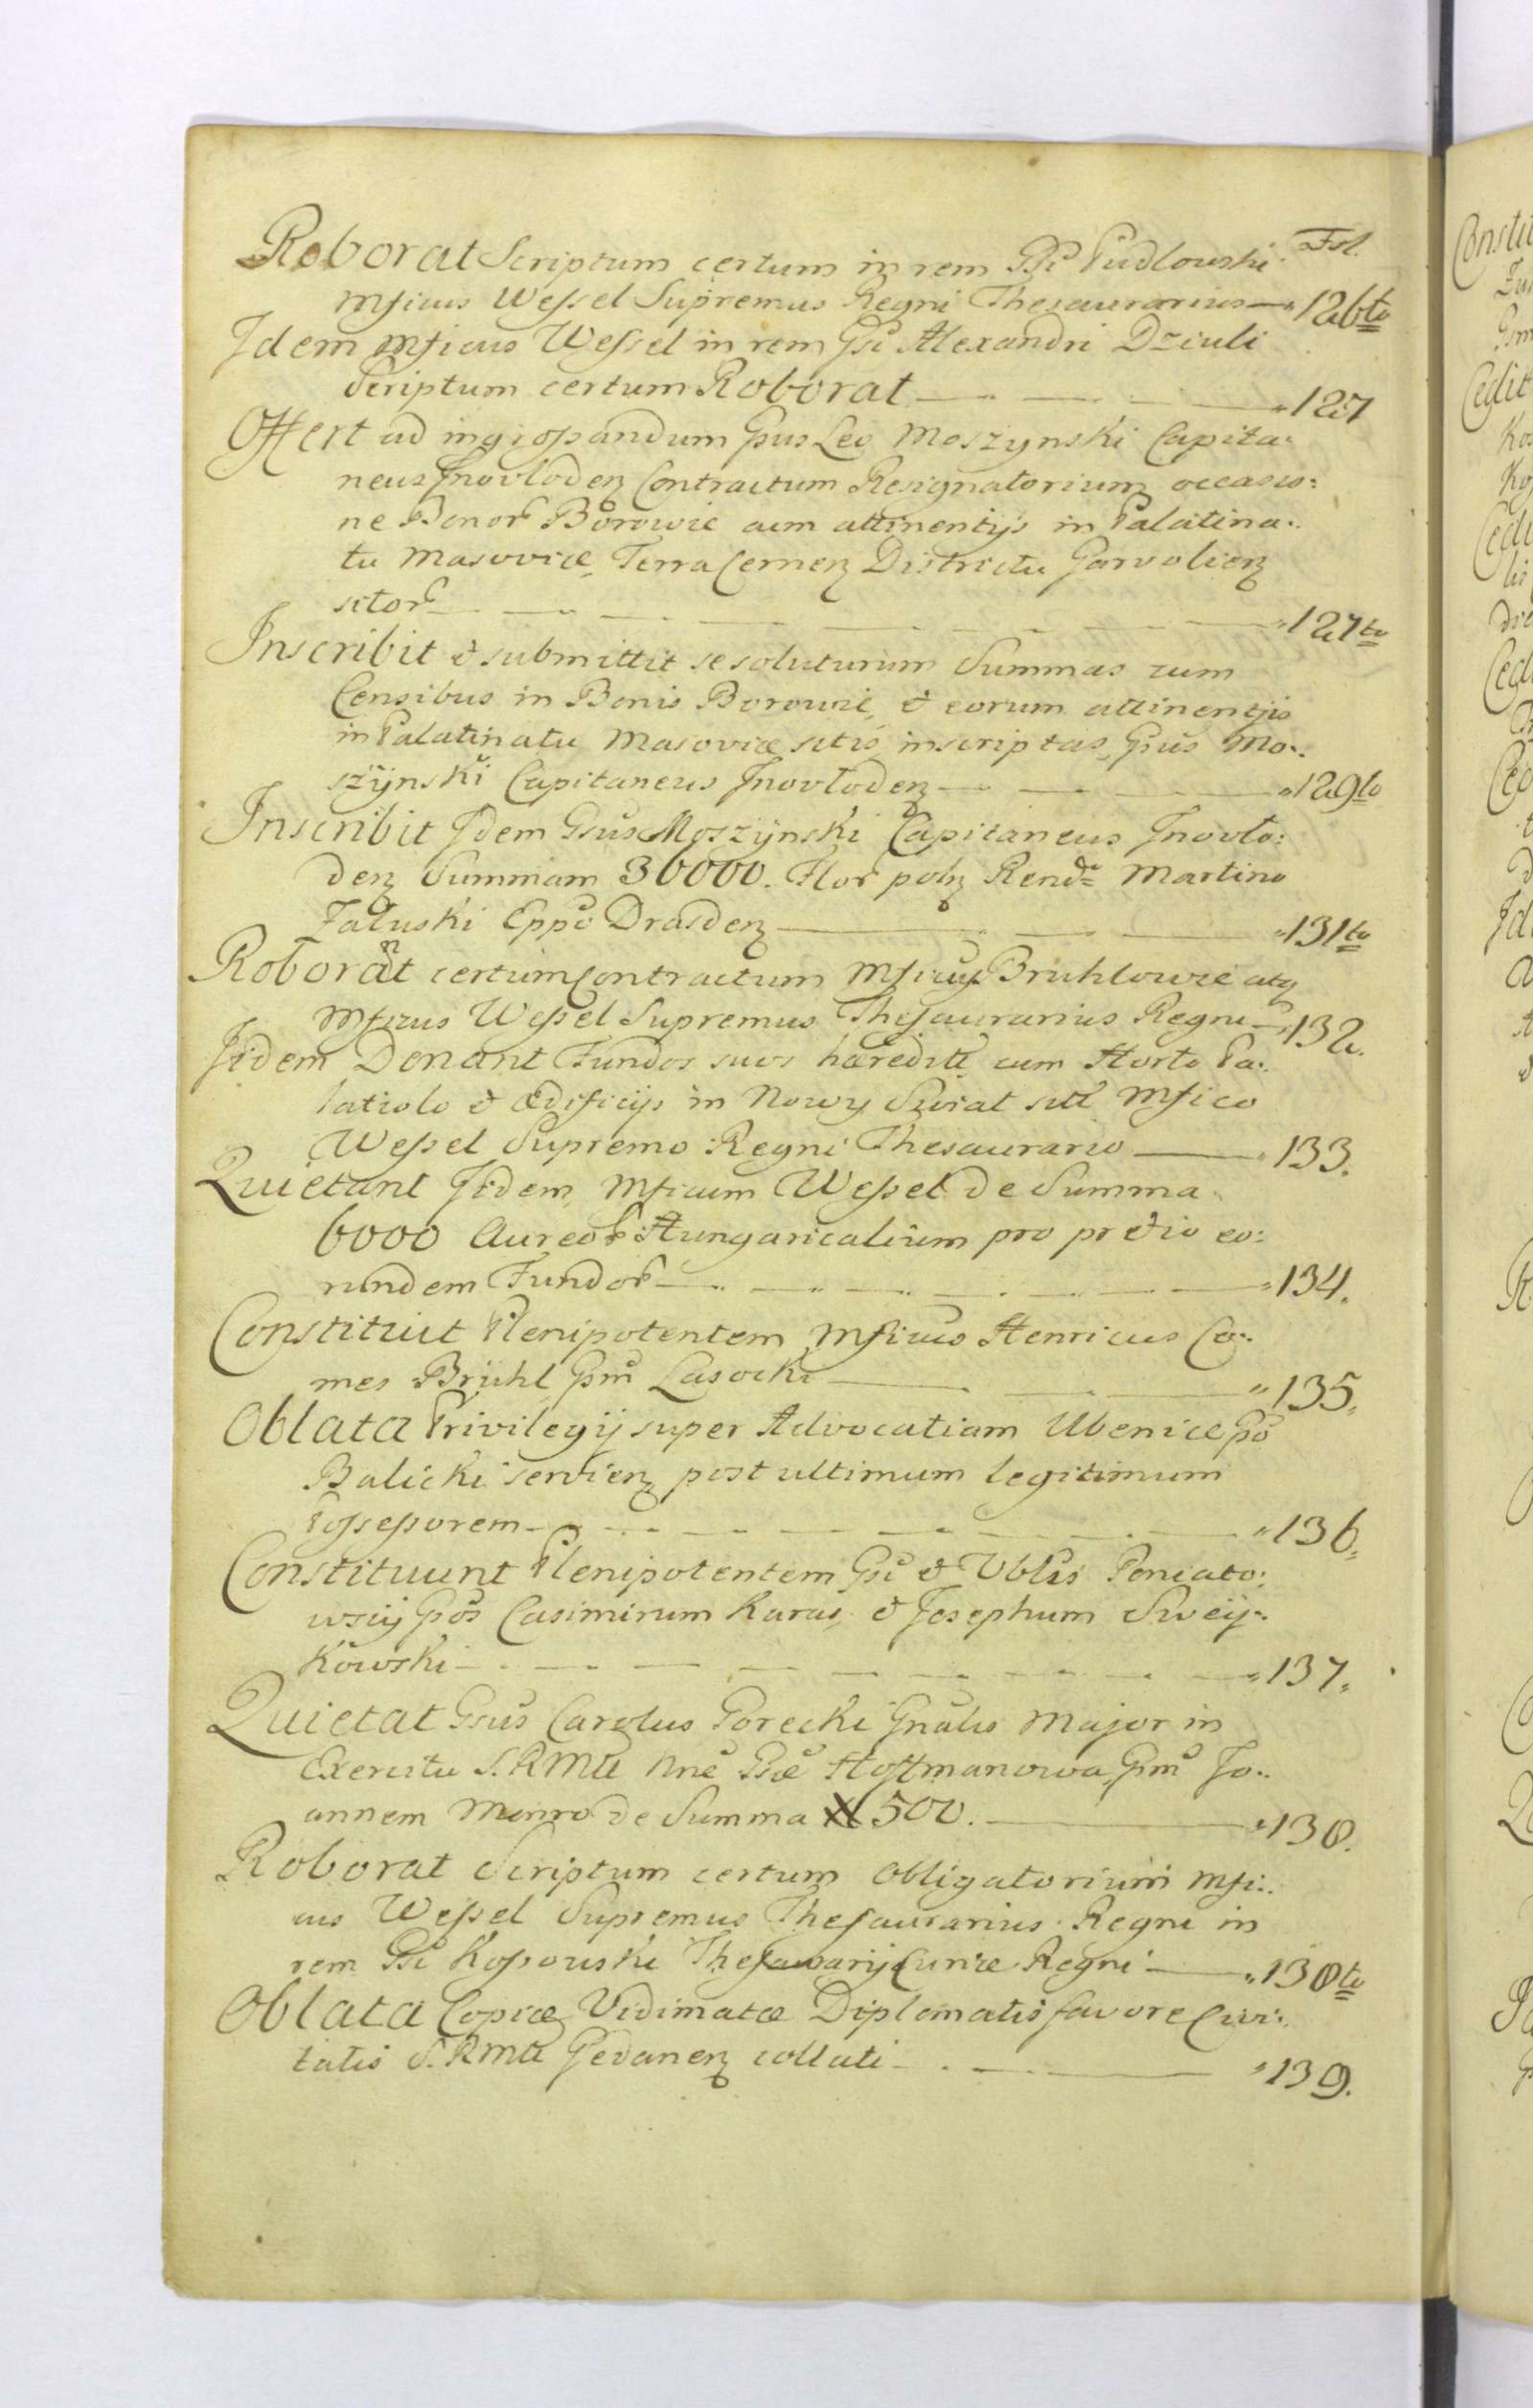 Fol.
Roborat Scriptum certum in rem Gsi Pudlowski
Mficus Wessel Supremus Regni Thesaurarius — 126to
Idem Mficus Wessel in rem Gsi Alexandri Dziuli
Scriptum certum Roborat — 127
Offert ad ingrossandum Gsus Leo Moszynski Capita:
neus Inovloden Contractum Resignatorium occasio:
ne Bonor Borowie cum attinentijs in Palatina:
tu Masoviæ, Terra Cernen Districtu Garvolien
sitor — 127to
Inscribit & submittit se soluturum Summas cum
Censibus in Bonis Borowie, & eorum attinentijs
in Palatinatu Masoviæ sitis inscriptas, Gsus Mo:
szÿnski Capitaneus Inovloden — 129to
Inscribit Idem Gsus Moszÿnski Capitaneus Inovlo:
den Summam 30000. Flor poln Rendo Martino
Załuski Eppo Drasden — 131to
Roborant certum Contractum Mficus Bruhlowie atq
Mficus Wessel Supremus Thesaurarius Regni — 132.
Iidem Donant Fundos suos hæredit cum Horto Pa:
latiolo & Ædificijs in Nowy Swiat sitt Mfico
Wessel Supremo Regni Thesaurario — 133.
Quietant Iidem Mficum Wessel de Summa
6000 Aureor Hungaricalium pro pretio eo:
rundem Fundor — 134.
Constituit Plenipotentem Mficus Henricus Co:
mes Brühl Gsm Lasocki — 135.
Oblata Privilegij super Advocatiam Ubenice Gso
Balicki servien post ultimum legitimum
Possessorem — 136.
Constituunt Plenipotentem Gsi & Vbles Poniato:
wscij Gsos Casimirum Karas, & Josephum Sweÿ:
kowski — 137.
Quietat Gsus Carolus Gorecki Gnalis Major in
Exercitu S.RMtt nne Gsæ Hoffmanowa, Gsm Jo:
annem Monro de Summa # 500. — 138.
Roborat Scriptum certum Obligatorium Mfi:
cus Wessel Supremus Thesaurarius Regni in
rem Gsi Kossowski Thesaurarij Curiæ Regni — 138to
Oblata Copiæ Vidimatæ Diplomatis favore Civi:
tatis S.RMtt Gedanen collati — 139.